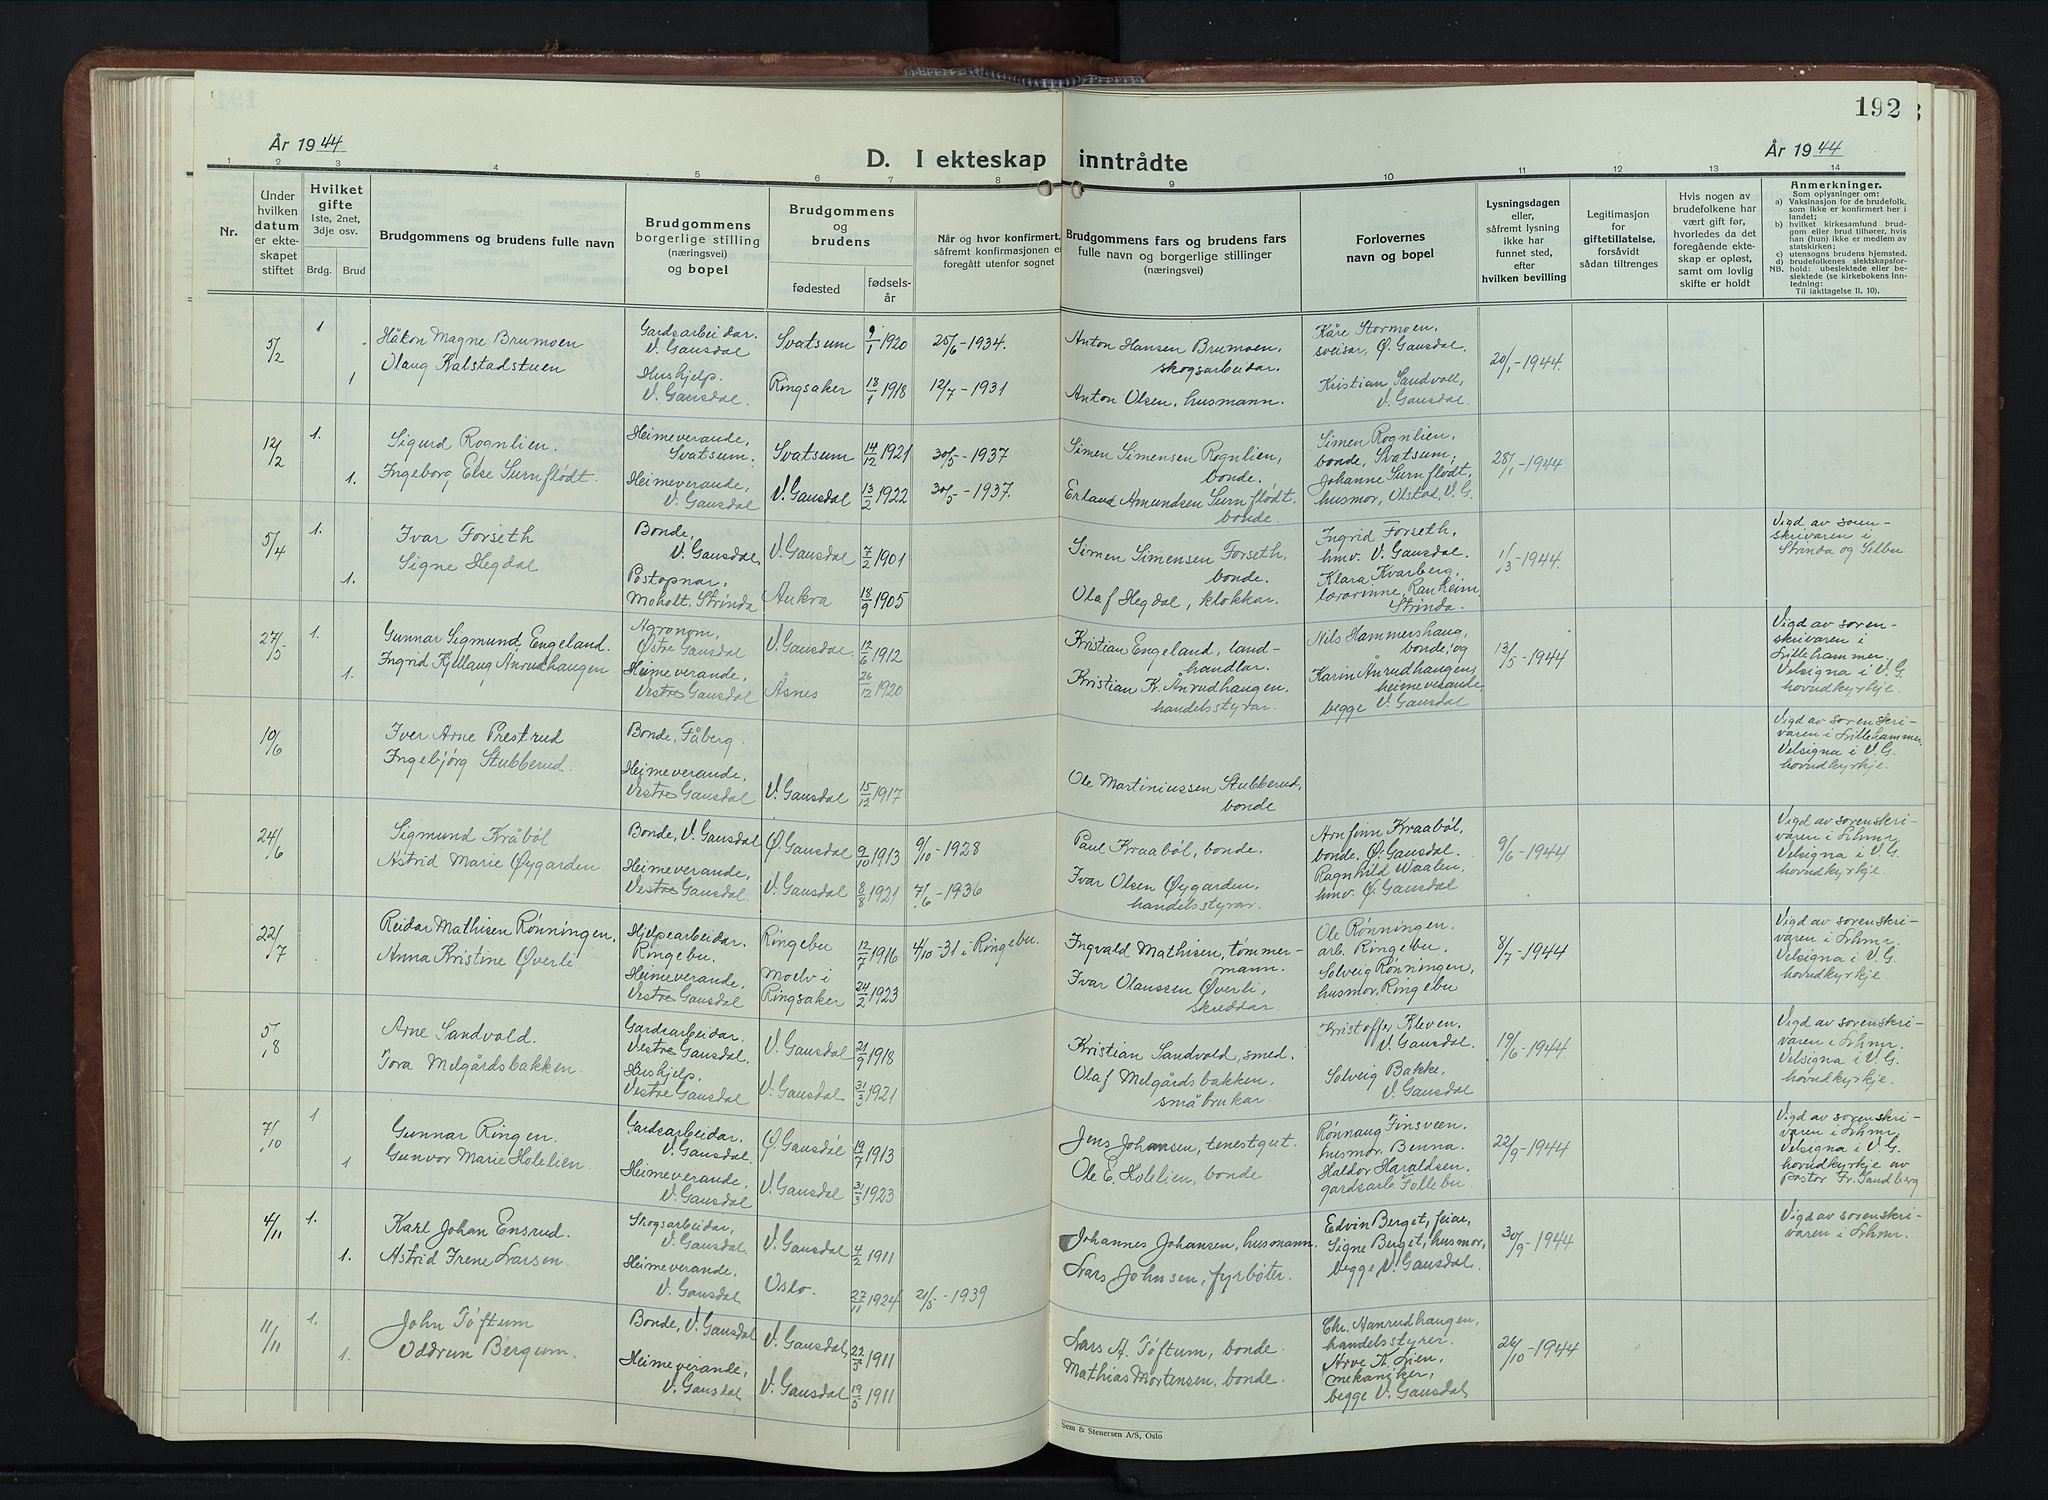 192
År 1944
År 1944
D. I ekteskap inntrådte
1 2 3 4 5 6 7 8 9 10 11 12 13 14
Nr.
Under
hvilken
datum
er ekte-
skapet
stiftet
Hvilket
gifte
1ste, 2net,
3dje osv.
Brdg. Brud
Brudgommens og brudens fulle navn
Brudgommens
borgerlige stilling
(næringsvei)
og bopel
Brudgommens
og
brudens
fødested
fødsels-
år
Når og hvor konfirmert,
såfremt konfirmasjonen er
foregått utenfor sognet
Brudgommens fars og brudens fars
fulle navn og borgerlige stillinger
(næringsvei)
Forlovernes
navn og bopel
Lysningsdagen
eller,
såfremt lysning
ikke har
funnet sted,
efter
hvilken bevilling
Legitimasjon
for
giftetillatelse,
forsåvidt
sådan tiltrenges
Hvis nogen av
brudefolkene har
vært gift før,
hvorledes da det
foregående ekte-
skap er opløst,
samt om lovlig
skifte er holdt
Anmerkninger.
Som oplysninger om:
a) Vaksinasjon for de brudefolk,
som ikke er konfirmert her i
landet;
b) hvilket kirkesamfund brud-
gom eller brud tilhører, hvis
han (hun) ikke er medlem av
statskirken;
c) utensogns brudens hjemsted.
d) brudefolkenes slektskapsfor-
NB. hold: ubeslektede eller be-
slektede (se kirkebokens Inn-
ledning:
Til iakttagelse II. 10).
5/2 1 Håkon Magne Brumoen Gardsarbeidar. V. Gausdal Svatsum 9/1 1920 25/6-1934. Anton Hansen Brumoen, skogsarbeidar. Kåre Stormoen, sveisar, Ø. Gausdal. 20/1-1944.
1 Olaug Kalstadstuen Hushjelp. V. Gausdal. Ringsaker 18/1 1918 12/7-1931 Anton Olsen, husmann. Kristian Sandvoll, V. Gausdal.
12/2 1. Sigurd Rognlien. Heimeverande, Svatsum. Svatsum 14/12 1921 30/5-1937 Simen Simensen Rognlien, bonde. Simen Rognlien, bonde, Svatsum; 28/1-1944
1. Ingeborg Else Surnflødt. Heimeverande, V. Gausdal V. Gausdal 13/2 1922 30/5-1937. Erland Amundsen Surnflødt. bonde. Johanne Surnflødt, husmor, Olstad, V. G.
5/4 1. Ivar Forseth Bonde, V. Gausdal, V. Gausdal 7/2 1901 Simen Simensen Forseth, bonde. Ingrid Forseth, hmv. V. Gausdal. 1/3-1944. Vigd av soren-
skrivaren i
Strinda og Selbu
1. Signe Hegdal Postopnar, Moholt, Strinda Aukra 18/9 1905 Olaf Hegdal, klokkar. Klara Kvarberg, lærarinne, Ranheim, Strinda.
27/5 1. Gunnar Sigmund Engeland. Agronom, Østre Gausdal V. Gausdal 12/6 1912 Kristian Engeland, landhandlar. Nils Hammershaug, bonde, og 13/5-1944 Vigd av soren-
skrivaren i
Lillehammer.
Velsigna i V. G.
hovudkyrkje.
1. Ingrid Kjellaug Ånrudhaugen. Heimeverande, Vestre Gausdal Åsnes 26/12 1920 Kristian K. Ånrudhaugen, handelsstyrar. Karin Ånrudhaugen, heimeverande, begge V. Gausdal
10/6 Iver Arne Prestrud Bonde, Fåberg. Vigd av sorenskri-
varen i Lillehammer.
Velsigna i V. G.
hovudkyrkje.
Ingebjørg Stubberud. Heimeverande, Vestre Gausdal V. Gausdal 15/12 1917 Ole Martiniussen Stubberud, bonde
24/6 Sigmund Kråbøl Bonde, V. Gausdal Ø. Gausdal 9/10 1913 9/10-1928 Paul Kraabøl, bonde. Arnfinn Kraabøl, bonde, Ø. Gausdal. 9/6-1944 Vigd av sorenskri-
varen i Lhmr.
Velsigna i V. G.
hovudkyrkje.
Astrid Marie Øygarden Heimeverande, Vestre Gausdal. V. Gausdal 8/8 1921 7/6-1936 Ivar Olsen Øygarden, handelsstyrar. Ragnhild Waalen, hmv. Ø. Gausdal
22/7 Reidar Mathisen Rønningen, Hjelpearbeidar. Ringebu. Ringebu 12/7 1916 4/10-31 i Ringebu. Ingvald Mathisen, tømmermann. Ole Rønningen. arb. Ringebu. 8/7-1944 Vigd av sorenskri-
varen i Lhmr.
Velsigna i V. G.
hovudkyrkje.
Anna Kristine Øverli Heimeverande, Vestre Gausdal Moelv i Ringsaker 24/2 1923 Ivar Olaussen Øverli, skreddar. Solveig Rønningen, husmor, Ringebu
5/8 Arne Sandvold. Gardsarbeidar. Vestre Gausdal. V. Gausdal 21/9 1918 Kristian Sandvold, smed. Kristoffer Kleven. V. Gausdal. 19/6-1944. Vigd av sorenskri-
varen i Lhmr.
Velsigna i V. G.
hovudkyrkje.
Tora Melgårdsbakken. Hushjelp, Vestre Gausdal V. Gausdal 31/3 1921 Olaf Melgårdsbakken, småbrukar. Solveig Bakke, V. Gausdal
7/10 1 Gunnar Ringen. Gardsarbeidar, V. Gausdal Ø. Gausdal 19/7 1913 Jens Johansen, tenestgut. Rønnaug Finsveen. husmor, Benna. 22/9-1944 Vigd av sorenskri-
varen i Lhmr.
Velsigna i V. G.
hovudkyrkje av
pastor Fr. Sandberg
1 Gunvor Marie Holelien. Heimeverande, V. Gausdal V. Gausdal 31/3 1923 Ole E. Holelien, bonde. Haldor Haraldsen, gardsarb. Follebu.
4/11 1. Karl Johan Ensrud. Skogsarbeidar, V. Gausdal V. Gausdal 4/2 1911 Johannes Johansen, husmann. Edvin Berget, feiar, 30/9-1944 Vigd av sorenskri-
varen i Lhmr.
1. Astrid Irene Larsen. Heimeverande, V. Gausdal Oslo. 27/11 1924 21/5-1939 Lars Johnsen, fyrbøter. Signe Berget, husmor, begge V. Gausdal.
11/11 1. John Tøftum Bonde, V. Gausdal V. Gausdal, 22/5 1911 Lars A. Tøftum, bonde. Chr. Aanrudhaugen, handelsstyrer. 26/10-1944
1. Oddrun Bergum. Heimeverande, V. Gausdal V. Gausdal 19/5 1911 Mathias Mortensen, bonde. Arve Th. Lien, mekaniker, begge V. Gausdal
Sem & Stenersen A/S, Oslo